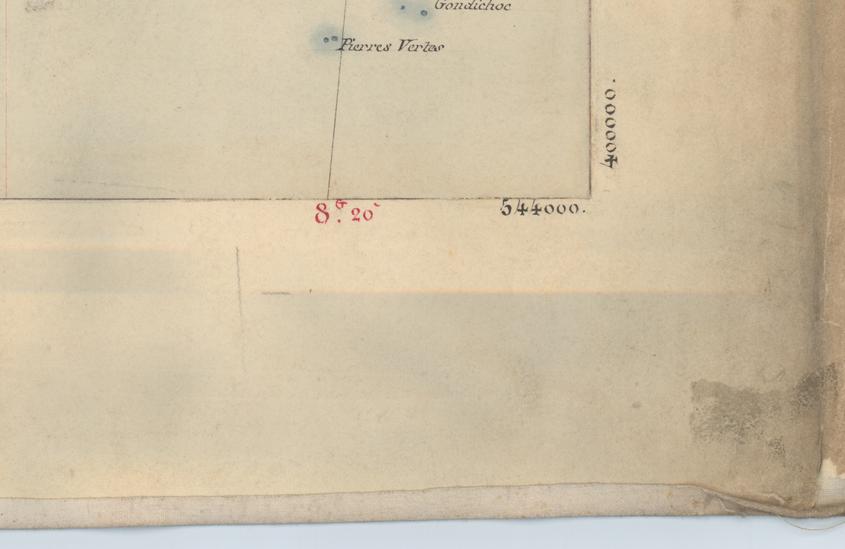 Gondichoc
Pierres Vertes
400000.
8.G 20`
544000.